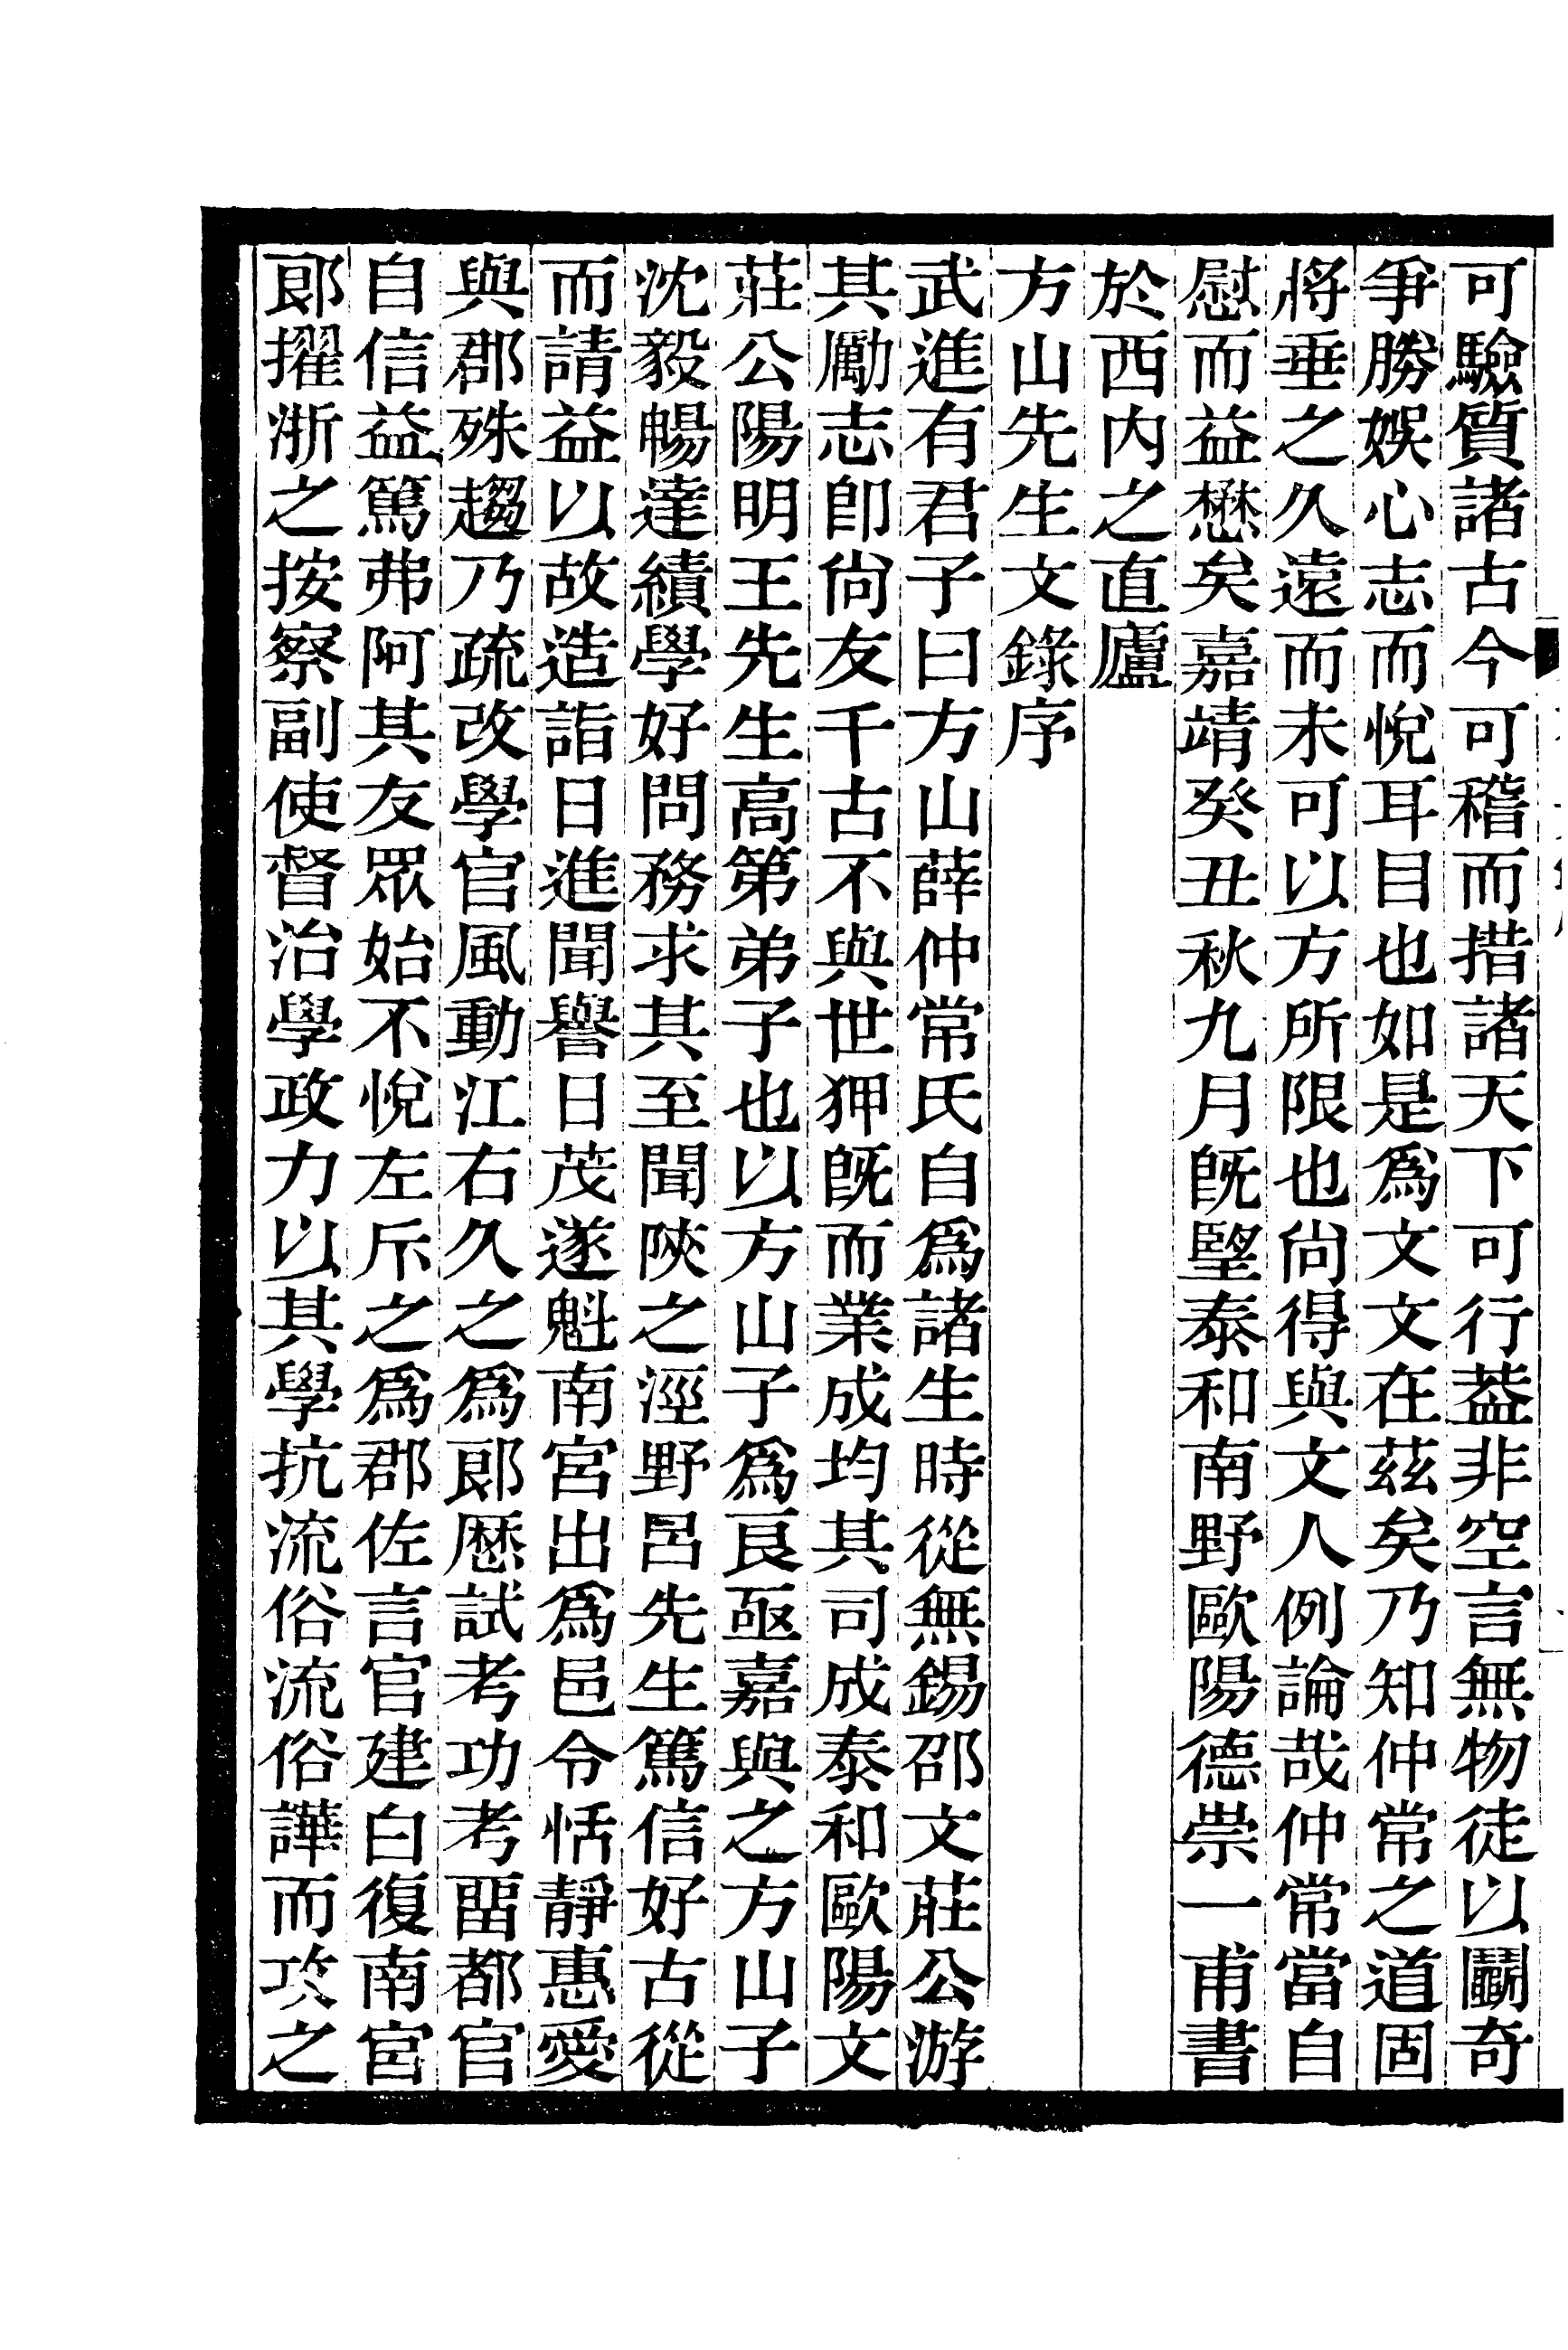 可驗質諸古今可稽而措諸天下可行葢非空言無物徒以鬭奇
爭勝娛心志而悅耳目也如是爲文文在茲矣乃知仲常之道固
將垂之久遠而未可以方所限也尙得與文人例論哉仲常當自
慰而益懋矣嘉靖癸丑秋九月旣朢泰和南野歐陽德崇一甫書
於西内之直廬
方山先生文錄序
武進有君子曰方山薛仲常氏自爲諸生時從無錫邵文莊公游
其勵志卽尙友千古不與世狎旣而業成均其司成泰和歐陽文
莊公陽明王先生高第弟子也以方山子爲良亟嘉與之方山子
沈毅暢達績學好問務求其至聞陝之涇野呂先生篤信好古從
而請益以故造詣日進聞譽日茂遂魁南宮出爲邑令恬靜惠愛
與郡殊趨乃疏改學官風動江右久之爲郞歷試考功考畱都官
自信益篤弗阿其友眾始不悅左斥之爲郡佐言官建白復南宮
郞擢浙之按察副使督治學政力以其學抗流俗流俗譁而攻之